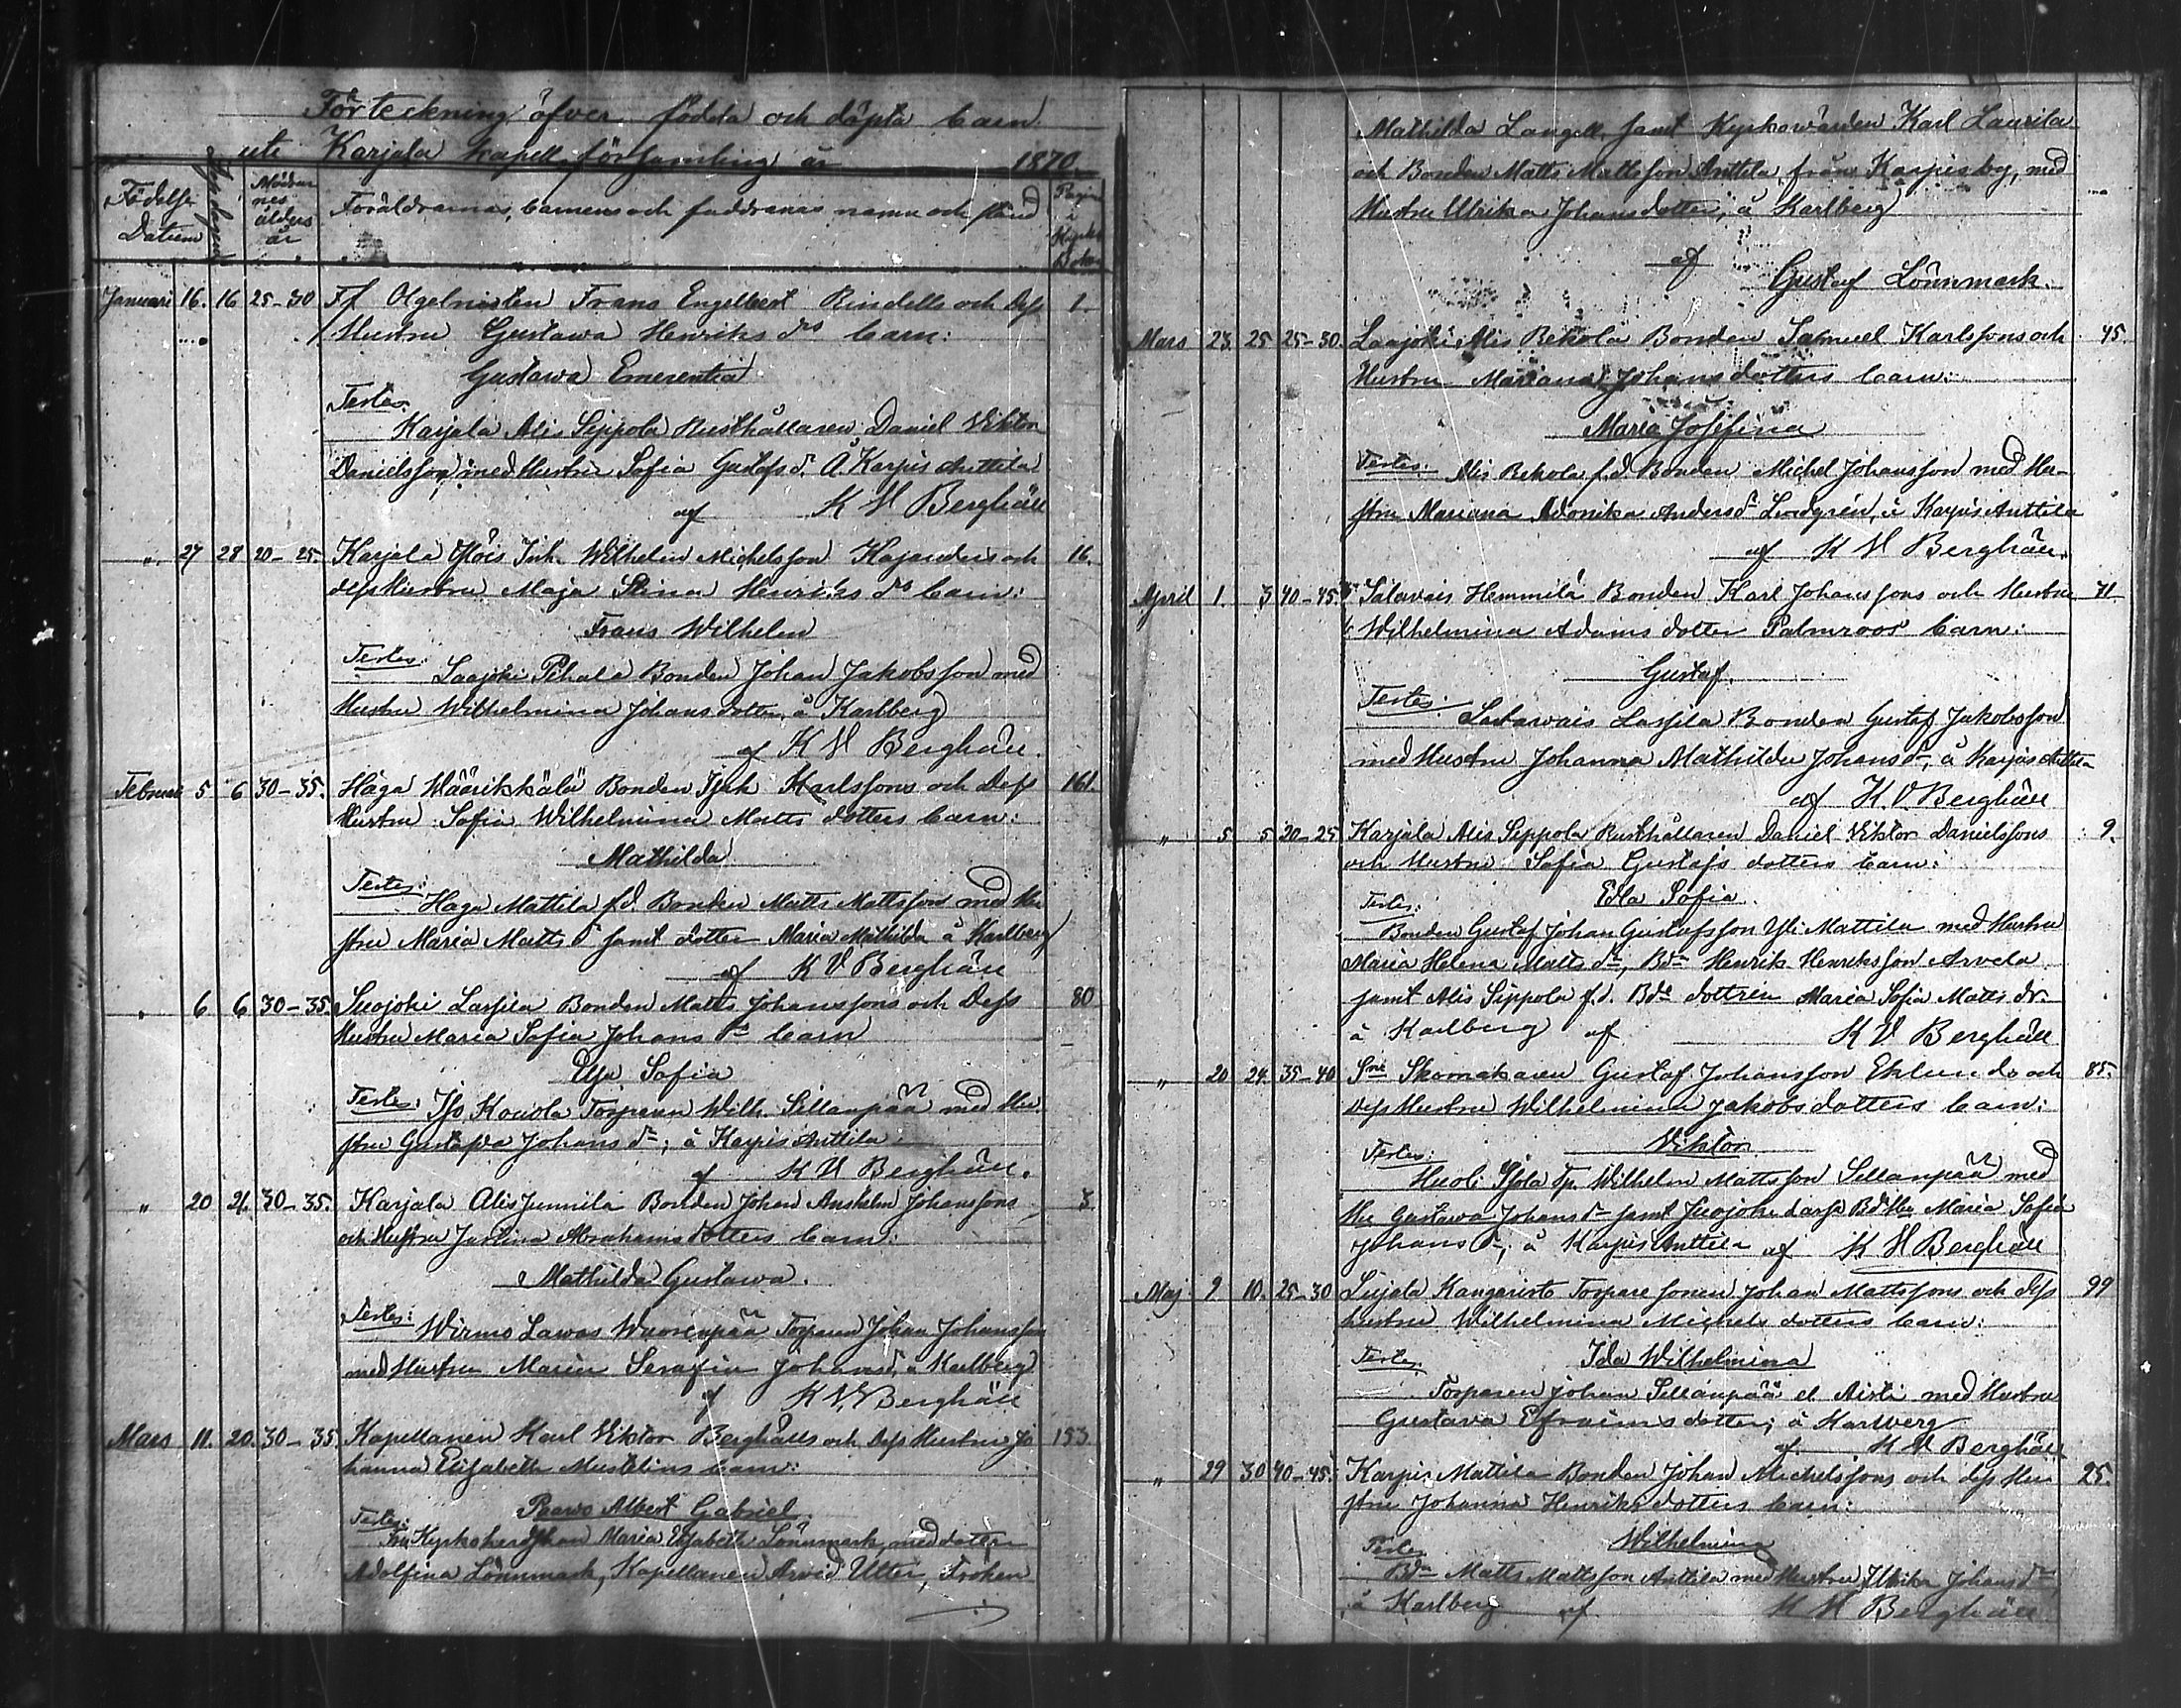 Förteckning öfver födda och döpta barn
uti Karjala kapellförsamling år 1870.
Födelse Datum
Dopdagen
Mödrarnes ålders år
Föräldrarnas, barnens och faddrarnas namn och stånd
Pagina i Kyrko Boken
Januari 16. 16 25-30 F.f. Olgelnisten Frans Engelbert Rindells och Dess 1.
Hustru Gustawa Henriks drs barn:
Gustawa Emerentia
Testes.
Karjala Alis Seppola Rusthållaren Daniel Viktor
Danielsson, med Hustru Sofia Gustafs dr. Å Karpis Anttila
af K V Berghäll
" 27 28 20-25. Karjala Inh. Wilhelm Michelsson Kajanders och 16.
dess Hustru Maja Stina Henriks drs barn:
Frans Wilhelm
Testes:
Laajoki Pihala Bonden Johan Jakobsson med
Hustru Wilhelmina Johans dotter, å Karlberg
af K V Berghäll.
Februari 5 6 30-35. Haga Wäärikkälä Bonden Isak Karlssons och Dess 161.
Hustru Sofia Wilhelmina Matts dotters barn:
Mathilda
Testes:
Haga Mattila f.d. Bonden Matts Mattsson med Hu
stru Maria Matts dr samt dotter Maria Mathilda å Karlberg
af K V Berghäll
" 6. 6 30-35. Suojoki Lassila Bonden Matts Johanssons och Dess 80
Hustru Maria Sofia Johans drs barn
Sofia
Testes: Kouola Torparen Wilh. Sillanpää med Hu
stru Gustawa Johans dr; å Karpis Anttila
af K V Berghäll.
" 20 21. 30-35. Karjala Alis Junnila Bonden Johan Anshelm Johanssons 3.
och Hustru Justina Abrahams dotters barn:
Mathilda Gustawa.
Testes:
Wirmo Lawas Wuorenpää Torparen Johan Johansson
med Hustru Maria Serafia Johansdr, å Karlberg
af K V Berghäll
Mars 11. 20. 30-35 Kapellanen Karl Viktor Berghälls och dess Hustru Jo 153
hanna Elisabeth Mustelins barn:
Paavo Albert Gabriel.
Testes:
Fru Kyrkoherdskan Maria Elisabeth Lönnmark, med dotter
Adolfina Lönnmark, Kapellanen Arvid Ulter, Fröken
Mathilda Langell, samt Kyrkovärden Karl Laurila
och Bonden Matts Mattsson Anttila från Karpis by, med
Hustru Ulrika Johans dotter; å Karlberg
af Gustaf Lönnmark.
Mars 23. 25 25-30. Laajoki Alis Rekola Bonden Samuel Karlssons och 45
Hustru Mariana Johans dotters barn:
Maria Josefina
Testes: Alis Rekola f.d. Bonden Michel Johansson med Hu-
stru Mariana Adonika Anders dr Lindgrén, å Karpis Anttila
af K V Berghäll.
April 1. 3 40-45. Salavais Hemmilä Bonden Karl Johanssons och Hustru 71
Wilhelmina Adams dotter Palmroos barn:
Gustaf.
Testes:
Salavais Lassila Bonden Gustaf Jakobsson
med Hustru Johanna Mathilda Johans dr, å Karpis Anttila
af K. V. Berghäll
" 5 5 20-25 Karjala Alis Seppola Rusthållaren Daniel Viktor Danielssons 9.
och Hustru Sofia Gustafs dotters barn:
Edla Sofia.
Testes:
Bonden Gustaf Johan Gustafsson Yli-Mattila med Hustru
Maria Helena Matts dr, Bdn Henrik Henriksson Arvela
samt Alis Seppola f.d. Bds dottren Maria Sofia Matts dr
å Karlberg af K V Berghäll
" 20 24. 35-40 Skomakaren Gustaf Johansson Eklunds och 85.
dess Hustru Wilhelmina Jakobs dotters barn:
Viktor
Testes:
Huoli Isola Tp. Wilhelm Mattsson Sillanpää med
Hu Gustawa Johans dr samt Suojoki Maria Sofia
Johans dr, å Karpis Anttila af K V Berghäll
Maj 9. 10. 25-30 Lujala Kangaristo Torpare sonen Johan Mattssons och dess 99
hustru Wilhelmina Michels dotters barn:
Testes Ida Wilhelmina
Torparen Johan Sillanpää med Hustru
Gustava Efraims dotter; å Karlberg
af K V Berghäll
" 29 30 40-45. Karpis Mattila Bonden Johan Michelssons och dess Hu 25.
stru Johanna Henriks dotters barn:
Wilhelmina
Testes
Bdn Matts Mattsson Anttila med Hustru Ulrika Johans dr
å Karlberg af K V Berghäll